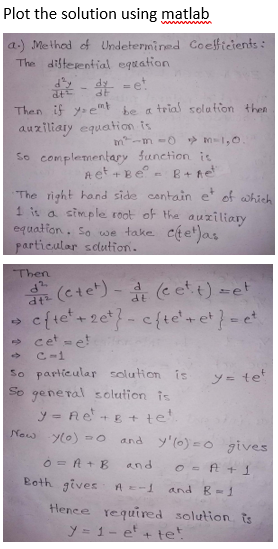 Plot the solution using matlab
a.) Method of Undetermined Coefficients :
The differential equation
d²y/dt² - dy/dt = e^t
Then if y = e^mt be a trial solution then
auxiliary equation is
m² - m = 0 ⇒ m = 1, 0.
So complementary function is
A e^t + B e^0 = B + A e^t
The right hand side contain e^t of which
1 is a simple root of the auxiliary
equation. So we take c(te^t) as
particular solution.
Then
d²/dt² (c t e^t) - d/dt (c e^t. t) = e^t
⇒ c{te^t + 2e^t} - c{te^t + e^t} = e^t
⇒ ce^t = e^t
⇒ c = 1
So particular solution is y = te^t
So general solution is
y = A e^t + B + te^t
Now y(0) = 0 and y'(0) = 0 gives
0 = A + B and 0 = A + 1
Both gives A = -1 and B = 1
Hence required solution is
y = 1 - e^t + te^t